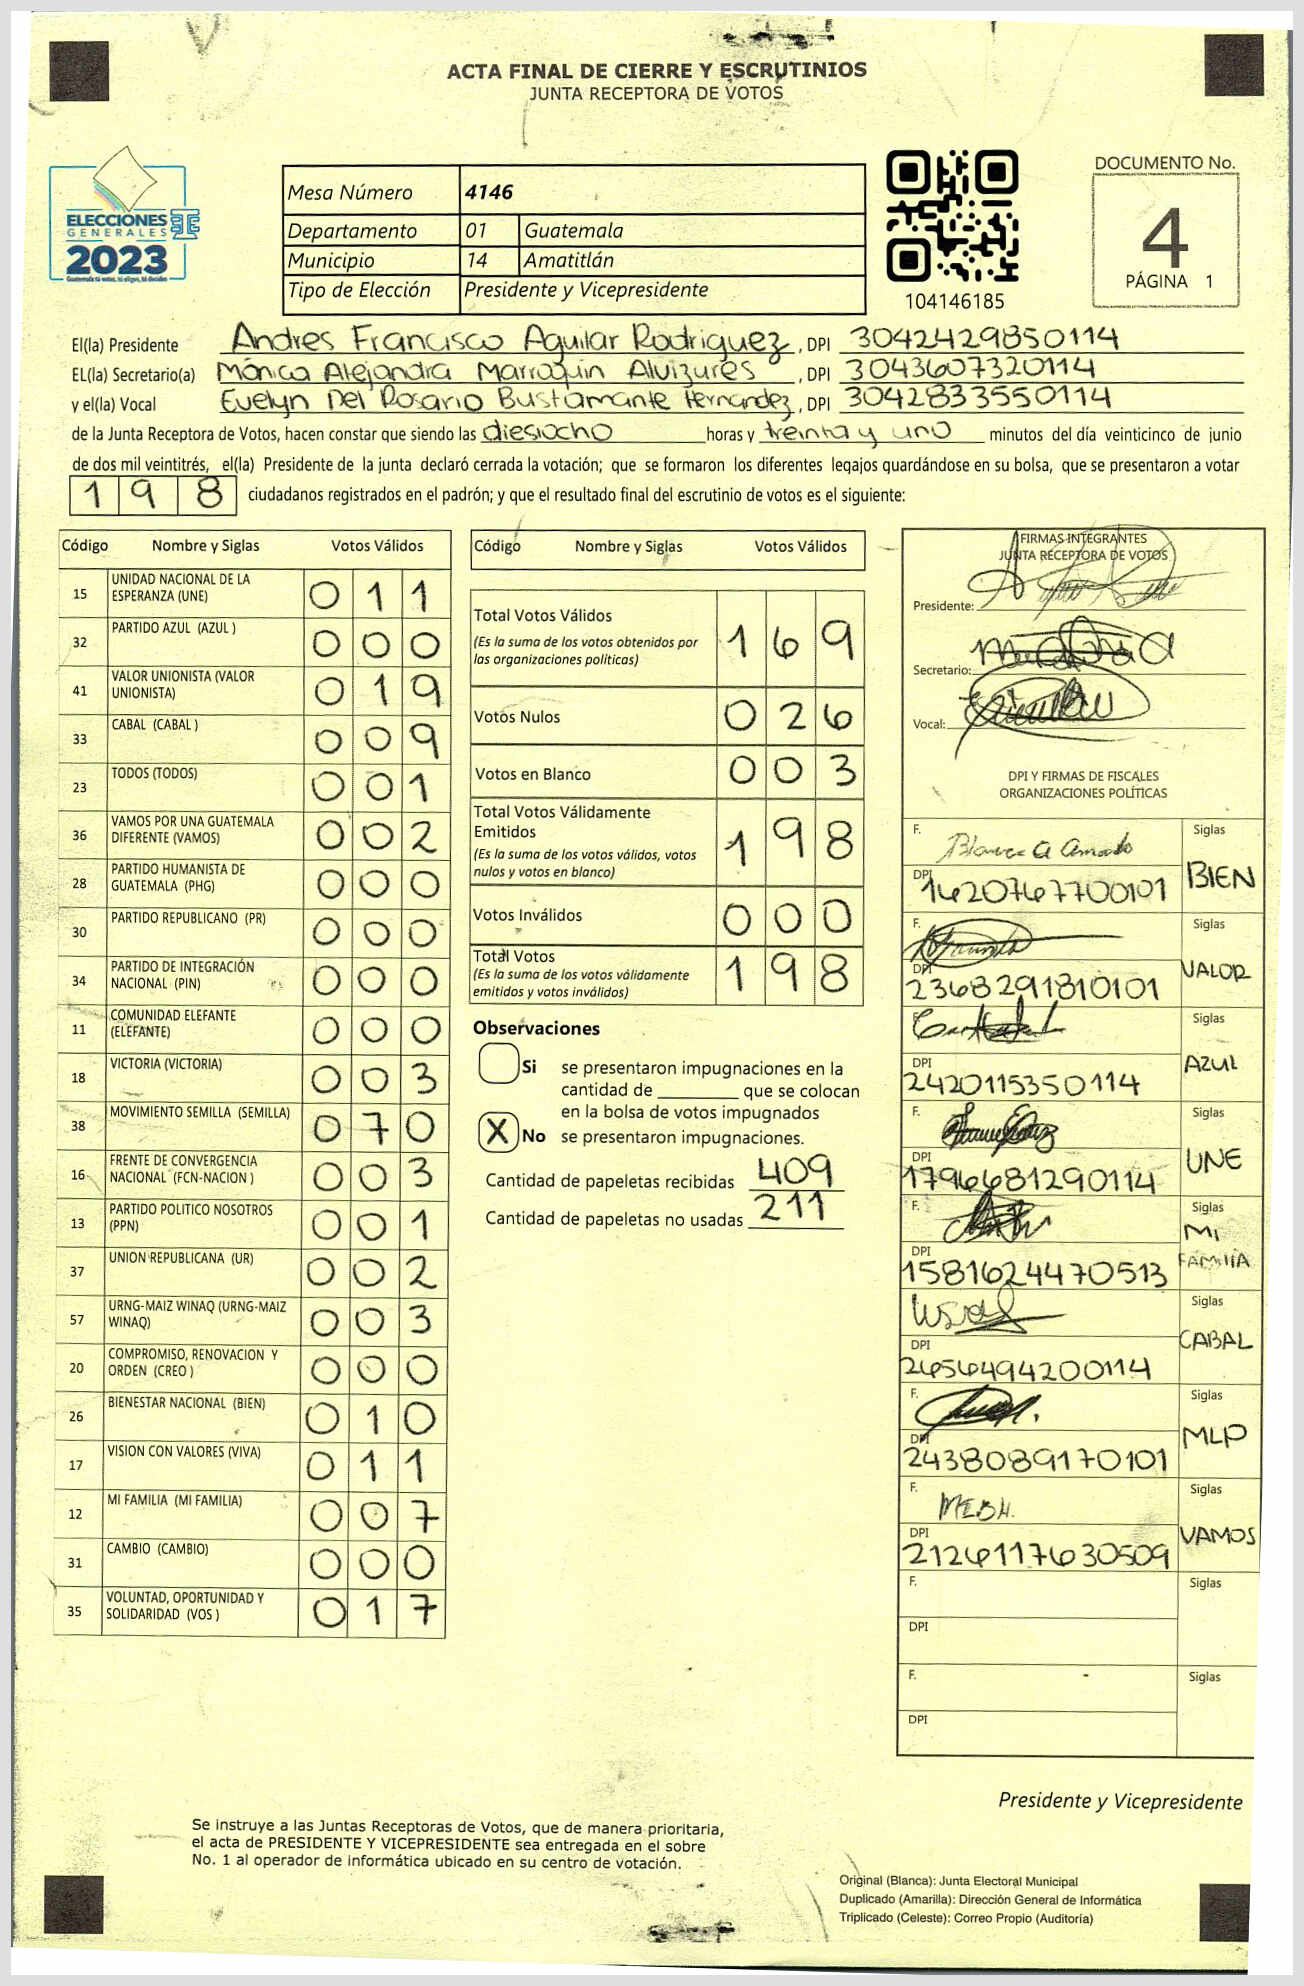 ACTA FINAL DE CIERRE Y ESCRUTINIOS
JUNTA RECEPTORA DE VOTOS
ELECCIONES
GENERALES
2023
Mesa Número 4146
Departamento 01 Guatemala
Municipio 14 Amatitlán
Tipo de Elección Presidente y Vicepresidente
104146185
DOCUMENTO No.
4
PÁGINA 1
El(la) Presidente Andres Francisco Aguilar Rodriguez, DPI 3042429850114
EL(la) Secretario(a) Mónica Alejandra Marroquin Alvizures, DPI 3043607320114
y el(la) Vocal Evelyn Del Rosario Bustamante Hernandez, DPI 3042833550114
de la Junta Receptora de Votos, hacen constar que siendo las diesiocho horas y treinta y uno minutos del día veinticinco de junio
de dos mil veintitrés, el(la) Presidente de la junta declaró cerrada la votación; que se formaron los diferentes legajos guardándose en su bolsa, que se presentaron a votar
198 ciudadanos registrados en el padrón; y que el resultado final del escrutinio de votos es el siguiente:
Código Nombre y Siglas Votos Válidos
15 UNIDAD NACIONAL DE LA ESPERANZA (UNE) 011
32 PARTIDO AZUL (AZUL ) 000
41 VALOR UNIONISTA (VALOR UNIONISTA) 019
33 CABAL (CABAL ) 009
23 TODOS (TODOS) 001
36 VAMOS POR UNA GUATEMALA DIFERENTE (VAMOS) 002
28 PARTIDO HUMANISTA DE GUATEMALA (PHG) 000
30 PARTIDO REPUBLICANO (PR) 000
34 PARTIDO DE INTEGRACIÓN NACIONAL (PIN) 000
11 COMUNIDAD ELEFANTE (ELEFANTE) 000
18 VICTORIA (VICTORIA) 003
38 MOVIMIENTO SEMILLA (SEMILLA) 070
16 FRENTE DE CONVERGENCIA NACIONAL (FCN-NACION ) 003
13 PARTIDO POLITICO NOSOTROS (PPN) 001
37 UNION REPUBLICANA (UR) 002
57 URNG-MAIZ WINAQ (URNG-MAIZ WINAQ) 003
20 COMPROMISO, RENOVACION Y ORDEN (CREO ) 000
26 BIENESTAR NACIONAL (BIEN) 010
17 VISION CON VALORES (VIVA) 011
12 MI FAMILIA (MI FAMILIA) 007
31 CAMBIO (CAMBIO) 000
35 VOLUNTAD, OPORTUNIDAD Y SOLIDARIDAD (VOS ) 017
Código Nombre y Siglas Votos Válidos
Total Votos Válidos 169
(Es la suma de los votos obtenidos por
las organizaciones políticas)
Votos Nulos 026
Votos en Blanco 003
Total Votos Válidamente
Emitidos 198
(Es la suma de los votos válidos, votos
nulos y votos en blanco)
Votos Inválidos 000
Total Votos 198
(Es la suma de los votos válidamente
emitidos y votos inválidos)
Observaciones
Si se presentaron impugnaciones en la
cantidad de ________ que se colocan
en la bolsa de votos impugnados
X No se presentaron impugnaciones.
Cantidad de papeletas recibidas 409
Cantidad de papeletas no usadas 211
FIRMAS INTEGRANTES
JUNTA RECEPTORA DE VOTOS
Presidente:
Secretario:
Vocal:
DPI Y FIRMAS DE FISCALES
ORGANIZACIONES POLÍTICAS
F. Siglas
DPI 1620767700101 BIEN
F. Siglas
DPI 2368291810101 VALOR
F. Siglas
DPI 2420115350114 AZUL
F. Siglas
DPI 1796681290114 UNE
F. Siglas
DPI 1581624470513 MI FAMILIA
F. Siglas
DPI 2656494200114 CABAL
F. Siglas
DPI 2438089170101 MLP
F. Siglas
DPI 2126117630509 VAMOS
F. Siglas
DPI
F. Siglas
DPI
Presidente y Vicepresidente
Se instruye a las Juntas Receptoras de Votos, que de manera prioritaria,
el acta de PRESIDENTE Y VICEPRESIDENTE sea entregada en el sobre
No. 1 al operador de informática ubicado en su centro de votación.
Original (Blanca): Junta Electoral Municipal
Duplicado (Amarilla): Dirección General de Informática
Triplicado (Celeste): Correo Propio (Auditoría)